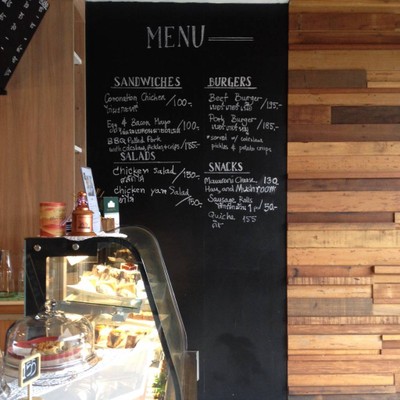 MENU
SANDWICHES
Coronation Chicken /100-
Egg & Bacon Mayo /100-
BBQ Pulled Pork
with coleslaw, pickles & crisps /185-
SALADS
Chicken Salad /150-
chicken yam Salad /150-
BURGERS
Beef Burger /195-
Pork Burger /185-
*served w/ coleslaw
pickles & potato crisps
SNACKS
Macaroni Cheese 130
Ham and Mushroom
Sausage Rolls /50-
Quiche 155